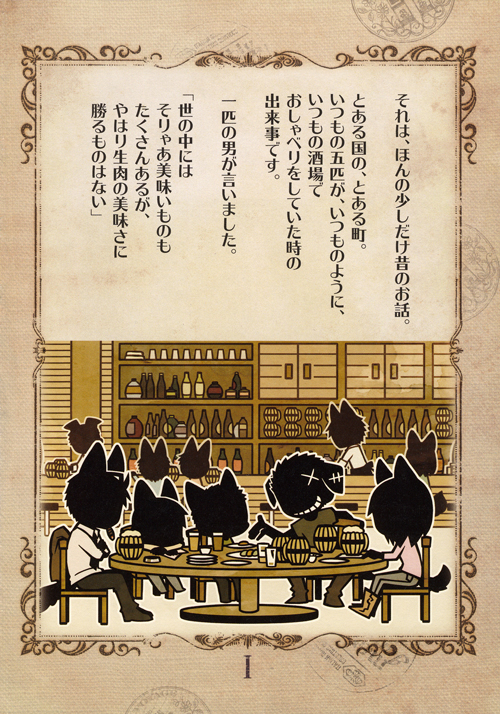 それは、ほんの少しだけ昔のお話。
とある国の、とある町。
いつもの五匹が、いつものように、
いつもの酒場で
おしゃべりをしていた時の
出来事です。
一匹の男が言いました。
「世の中には
そりゃあ美味いものも
たくさんあるが、
やはり生肉の美味さに
勝るものはない」
I